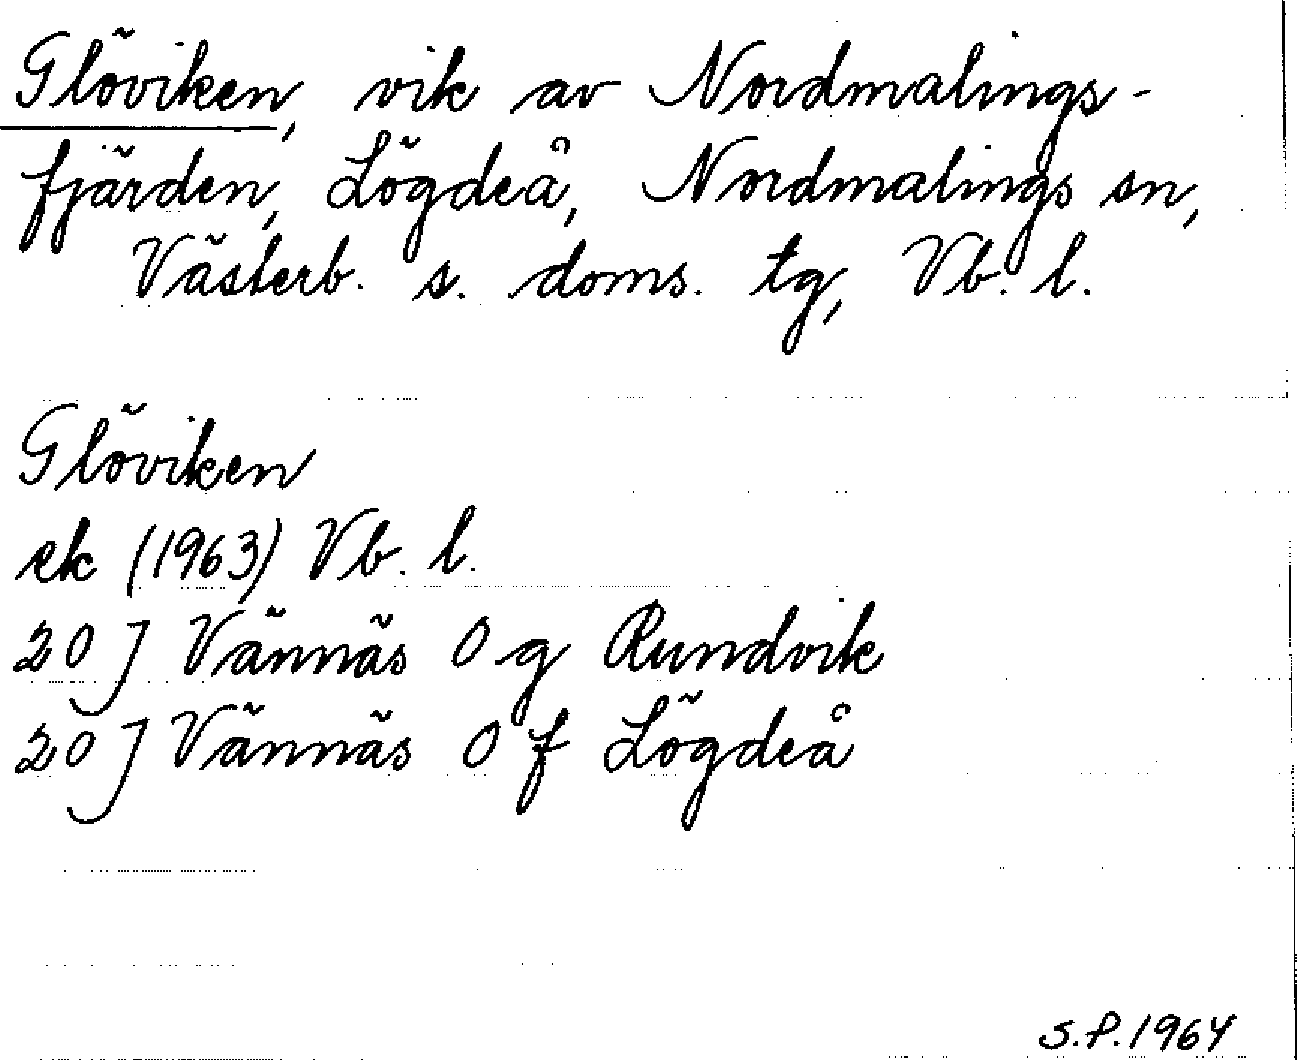 Glöviken, vik av Nordmalings-
fjärden, Lögdeå, Nordmalings sn,
Västerb. s. doms. tg, Vb. l.
Glöviken
ek (1963) Vb. l.
20 J Vännäs 0 g Rundvik
20 J Vännäs 0 f Lögdeå
S.P. 1964